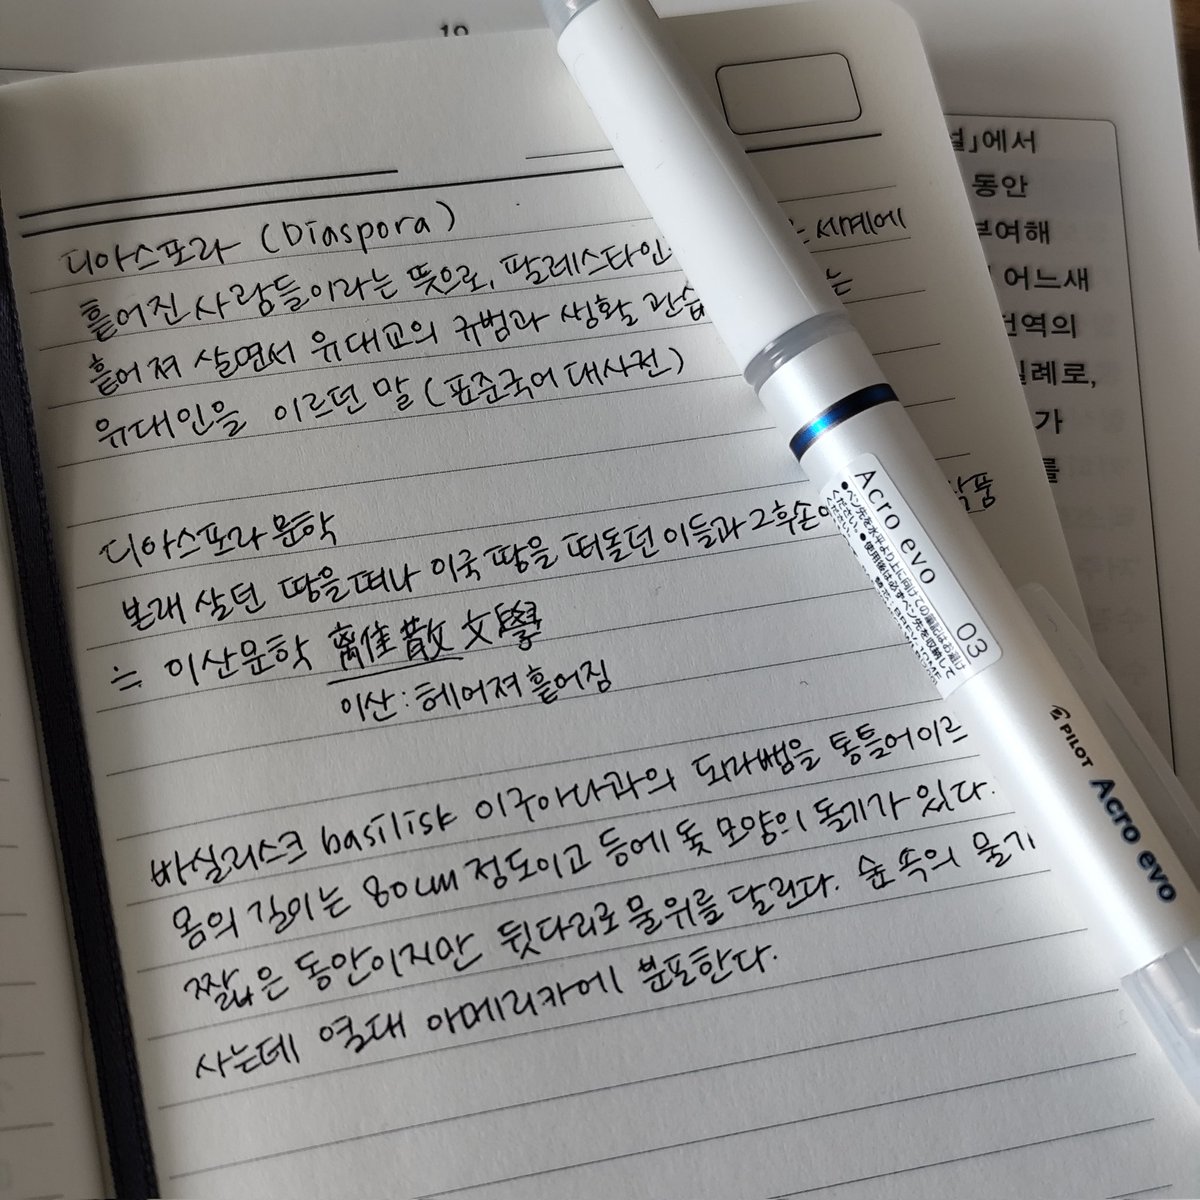 19
디아스포라 (Diaspora)
흩어진 사람들이라는 뜻으로, 팔레스타인 는 세계에
흩어져 살면서 유대교의 규범과 생활 관습 는
유대인을 이르던 말 (표준국어대사전)
디아스포라 문학
본래 살던 땅을 떠나 이국 땅을 떠돌던 이들과 그 후손 작품
≒ 이산문학 離散文學
이산 : 헤어져 흩어짐
바실리스크 basilisk 이구아나과의 도마뱀을 통틀어 이르
몸의 길이는 80cm 정도이고 등에 돛 모양의 돌기가 있다.
짧은 동안이지만 뒷다리로 물 위를 달린다. 숲 속의 물가
사는데 열대 아메리카에 분포한다.
」에서
동안
부여해
어느새
번역의
일례로,
가
를
Acro evo 03
●ペン先を水平より上に向けての筆記はお避け
ください。●使用後は必ずペン先を収納して
ください。
PILOT Acro evo